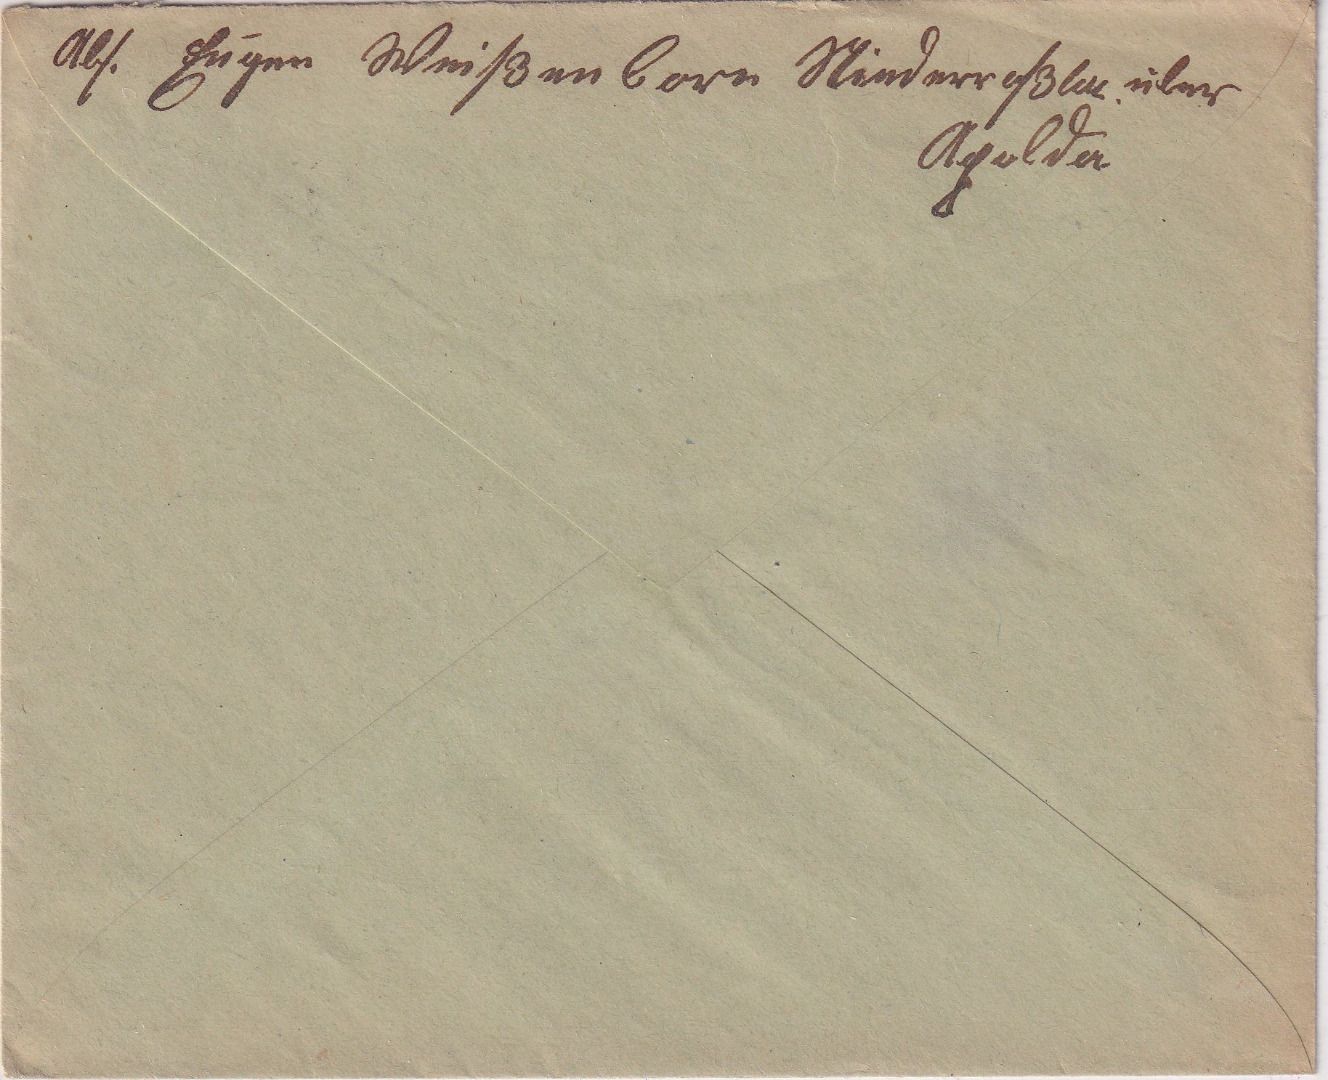 Abs. Eugen Weißenborn Niederroßla. über
Apolda